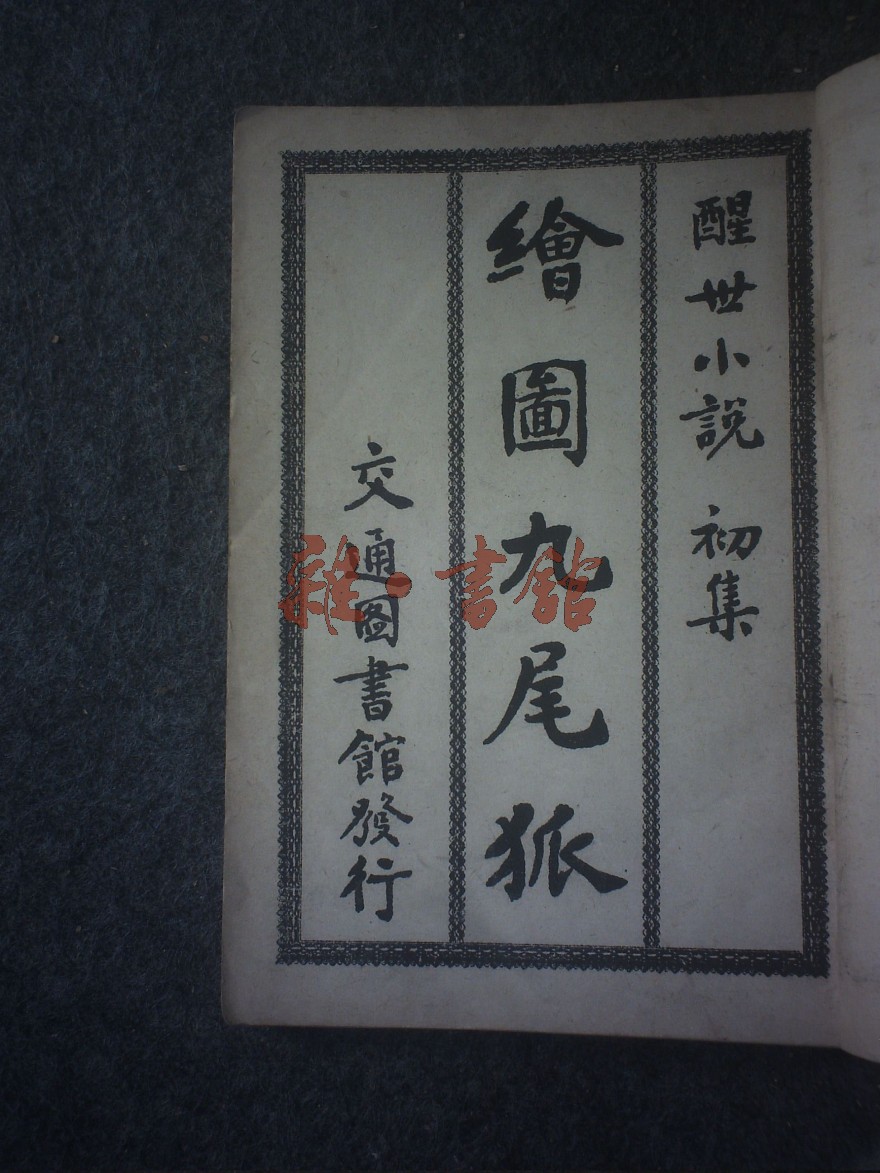 醒世小説 初集
繪圖九尾狐
交通圖書館發行
雜·書館